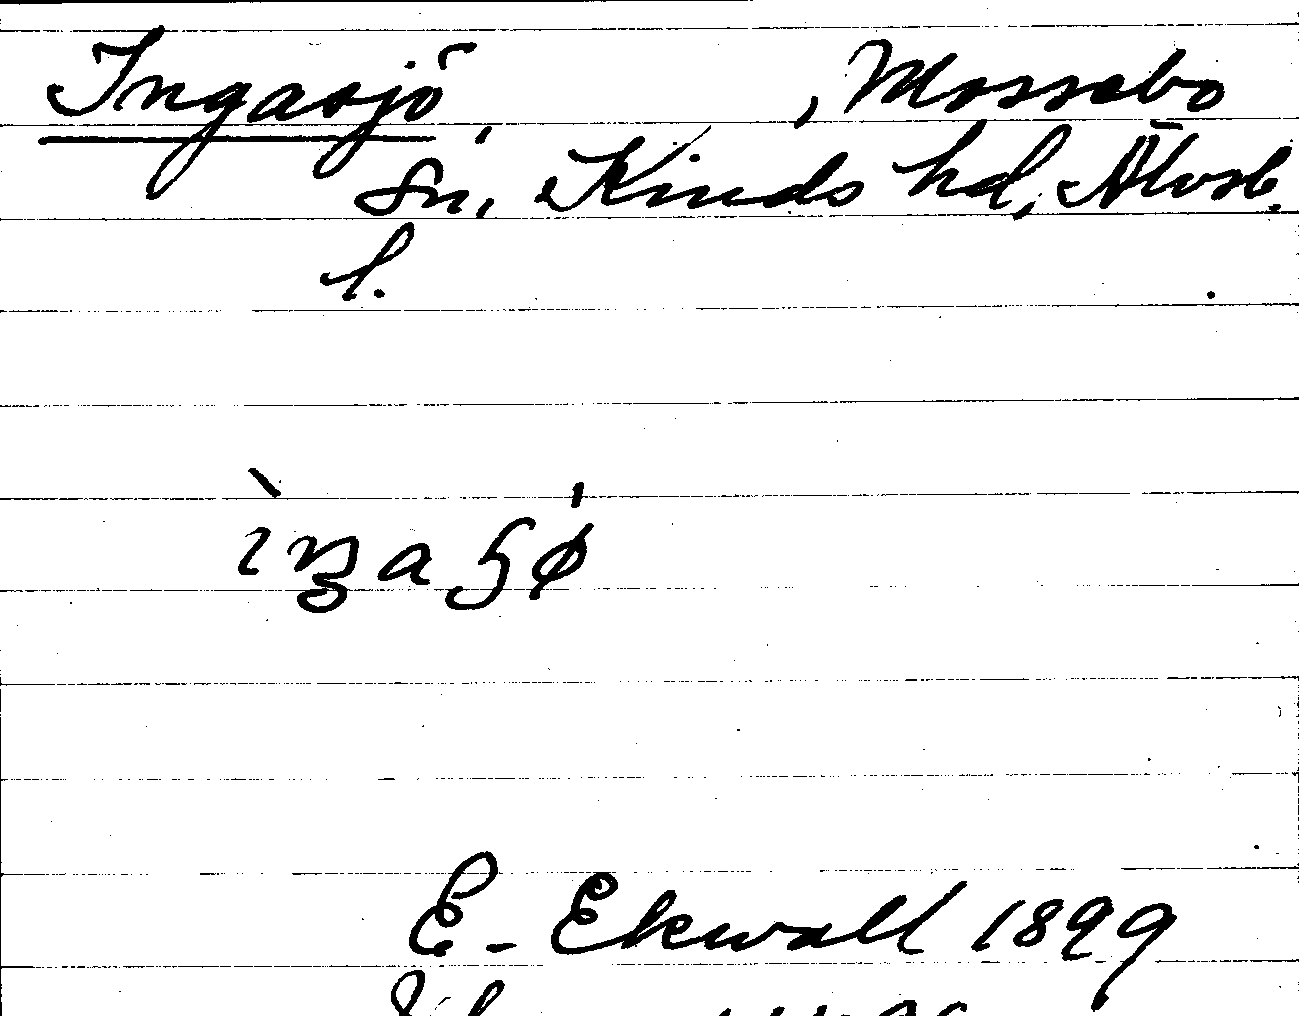 Ingasjö, , Mossebo
sn, Kinds hd, Älvsb.
l.
E. Ekwall 1899